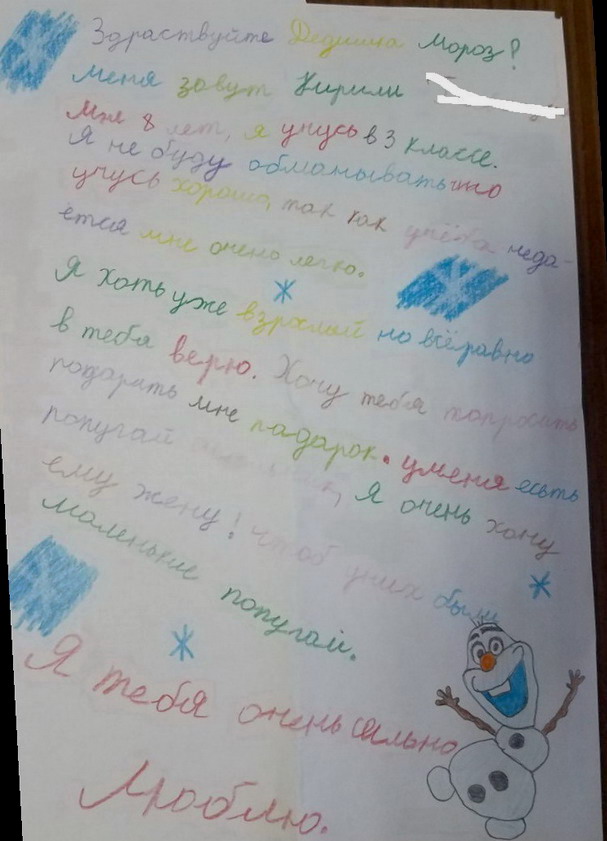 Здраствуйте Дедушка Мороз!
Меня зовут Кирилл
Мне 8 лет, я учусь в 3 классе.
Я не буду обманывать что
учусь хорошо, так как учёба неда-
ётся мне очено легко.
Я хоть уже взрослый но всёравно
в тебя верю. Хочу тебя попросить
подарить мне падарок. уменя есть
попугай Я очень хочу
ему жену! чтоб уних были
маленькие попугаи.
Я тебя очень сильно
Люблю.